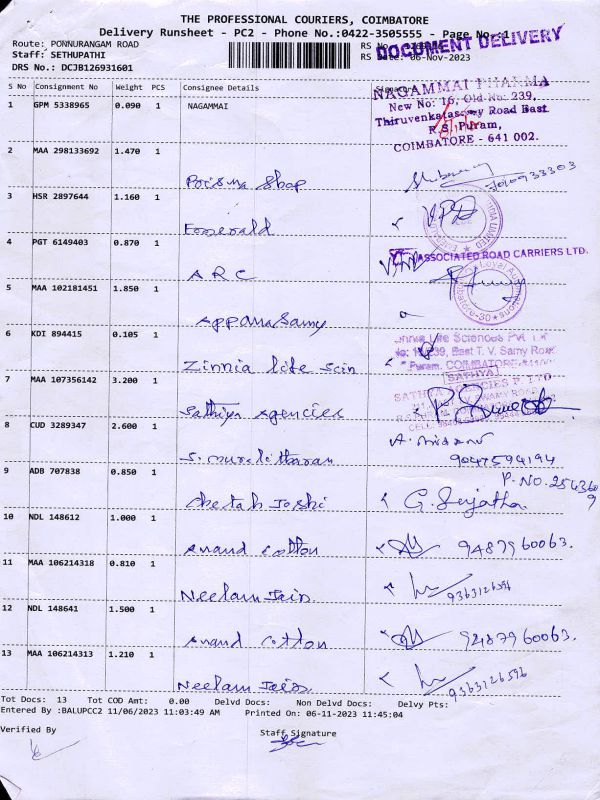 THE PROFESSIONAL COURIERS, COIMBATORE
Delivery Runsheet - PC2 - Phone No.:0422-3505555 - Page No.:1
DOCUMENT DELIVERY
Route: PONNURANGAM ROAD
Staff: SETHUPATHI
RS Date: 06-Nov-2023
DRS No.: DCJB126931601
S No Consignment No Weight PCS Consignee Details
1 GPM 5338965 0.090 1 NAGAMMAI
NAGAMMAI PHARMA
New No: 16, Old No: 239,
Thiruvenkatasamy Road East
R.S. Puram,
COIMBATORE - 641 002.
2 MAA 298133692 1.470 1
Poisma Shop
3 HSR 2897644 1.160 1
Emerald VPD
4 PGT 6149403 0.870 1
ASSOCIATED ROAD CARRIERS LTD.
ARC
5 MAA 102181451 1.850 1
Appanasamy
6 KDI 894415 0.105 1
Zinnia Life Sciences Pvt Lt
239, East T. V. Samy Road
Puram, COIMBATORE
Zinnia life Scin
7 MAA 107356142 3.200 1
SATHYA
SATHYA AGENCIES P LTD
Sathiya Agencies
8 CUD 3289347 2.600 1
S. muralitharan 9047594194
9 ADB 707838 0.850 1
P.NO. 254360
9
Chetah Joshi G. Sujatha
10 NDL 148612 1.000 1
Anand Cotton 9487960063.
11 MAA 106214318 0.810 1
Neelam Jain. 9363126596
12 NDL 148641 1.500 1
Anand Cotton 9487960063.
13 MAA 106214313 1.210 1
Neelam Jain 9363126596
Tot Docs: 13 Tot COD Amt: 0.00 Delvd Docs: Non Delvd Docs: Delvy Pts:
Entered By :BALUPCC2 11/06/2023 11:03:49 AM Printed On: 06-11-2023 11:45:04
Verified By Staff Signature